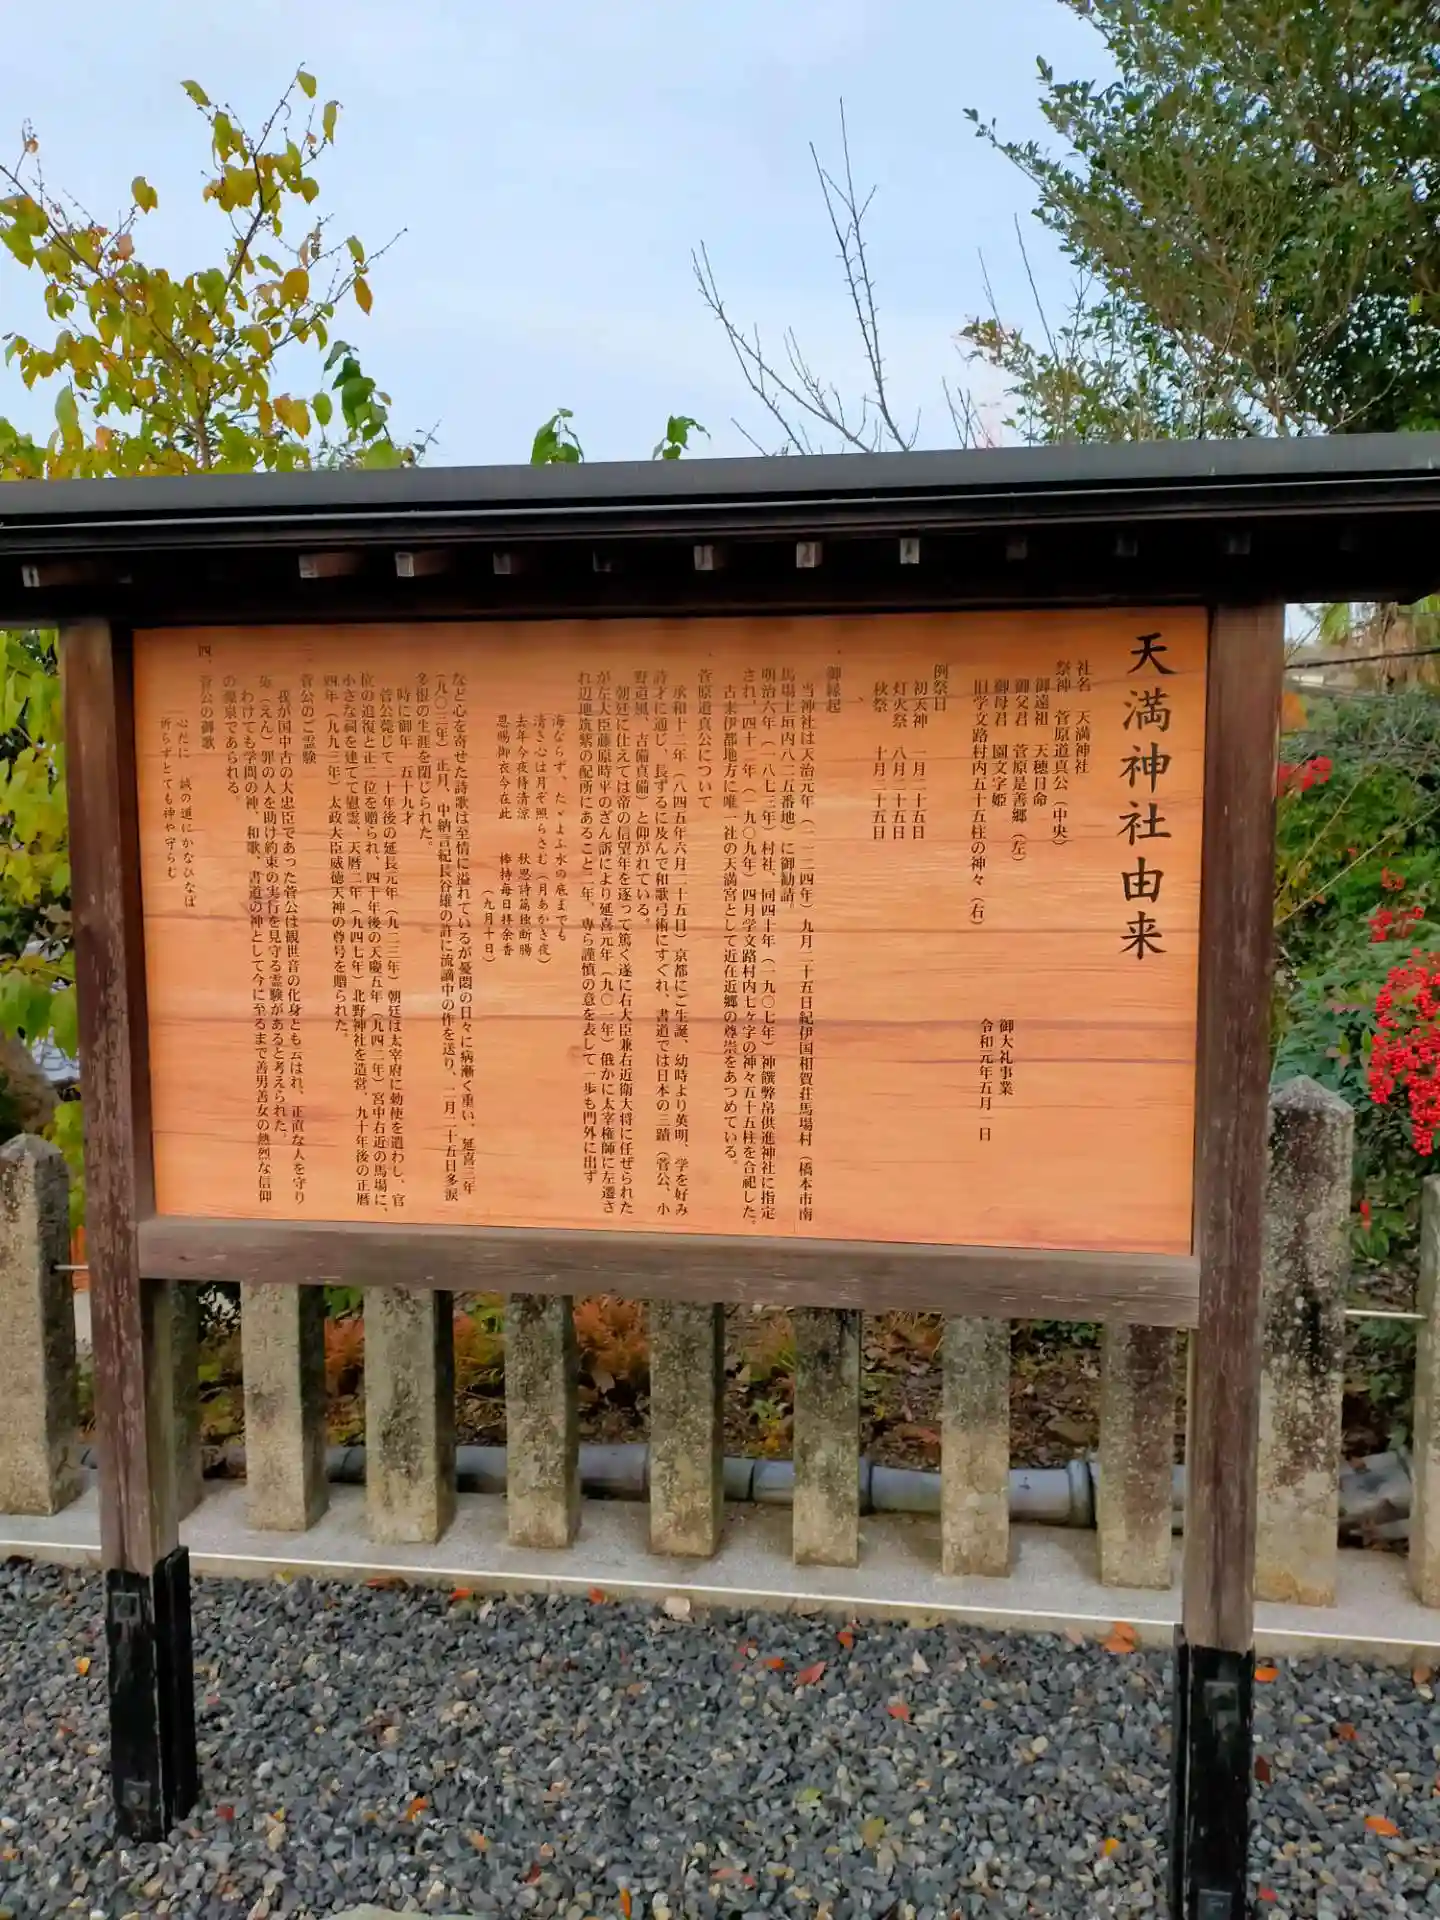 天満神社由来
社名　天満神社
祭神　菅原道真公（中央）
御遠祖　天穂日命
御父君　菅原是善郷（左）
御母君　園文字姫
旧学文路村内五十五柱の神々（右）
御大礼事業
令和元年五月一日
例祭日
初天神　一月二十五日
灯火祭　八月二十五日
秋祭　十月二十五日
一、
御縁起
当神社は天治元年（一一二四年）九月二十五日紀伊国相賀荘馬場村（橋本市南
馬場土垣内八二五番地）に御勧請。
明治六年（一八七三年）村社、同四十年（一九〇七年）神饌幣帛供進神社に指定
され、四十二年（一九〇九年）四月学文路村内七ヶ字の神々五十五柱を合祀した。
古来伊都地方に唯一社の天満宮として近在近郷の尊崇をあつめている。
菅原道真公について
承和十二年（八四五年六月二十五日）京都にご生誕、幼時より英明、学を好み
詩才に通じ、長ずるに及んで和歌弓術にすぐれ、書道では日本の三蹟（菅公、小
野道風、吉備真備）と仰がれている。
朝廷に仕えては帝の信望年を逐って篤く遂に右大臣兼右近衛大将に任ぜられた
が左大臣藤原時平のざん訴により延喜元年（九〇一年）俄かに太宰権師に左遷さ
れ辺地筑紫の配所にあること二年、専ら謹慎の意を表して一歩も門外に出ず
海ならず、たゞよふ水の底までも
清き心は月ぞ照らさむ（月あかき夜）
去年今夜待清涼　秋思詩篇独断腸
恩賜御衣今在此　捧持毎日拝余香
（九月十日）
など心を寄せた詩歌は至情に溢れているが憂悶の日々に病漸く重い、延喜三年
（九〇三年）正月、中納言紀長谷雄の許に流謫中の作を送り、二月二十五日多涙
多恨の生涯を閉じられた。
時に御年　五十九才
菅公薨じて二十年後の延長元年（九二三年）朝廷は太宰府に勅使を遣わし、官
位の追復と正二位を贈られ、四十年後の天慶五年（九四二年）宮中右近の馬場に、
小さな祠を建てて慰霊、天暦二年（九四七年）北野神社を造営、九十年後の正暦
四年（九九三年）太政大臣威徳天神の尊号を贈られた。
菅公のご霊験
我が国中古の大忠臣であった菅公は観世音の化身とも云はれ、正直な人を守り
寃（えん）罪の人を助け約束の実行を見守る霊験があると考えられた。
わけても学問の神、和歌、書道の神として今に至るまで善男善女の熱烈な信仰
の源泉であられる。
四、
菅公の御歌
心だに　誠の道にかなひなば
祈らずとても神や守らむ